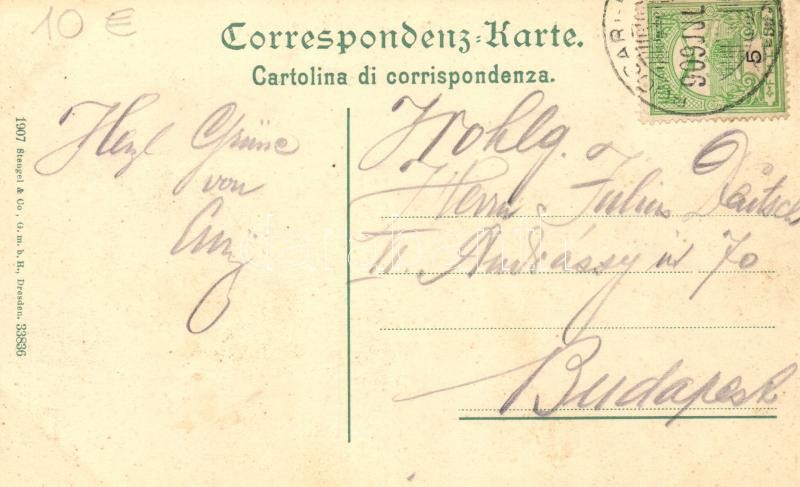 10 €
Correspondenz-Karte.
Cartolina di corrispondenza.
909 JUL
5
Herzl Grüße
von
Wohlg.
Herrn Julius Deutsch
Andrássy út 70
Budapest
1907 Stengel & Co., G. m. b. H., Dresden. 33836